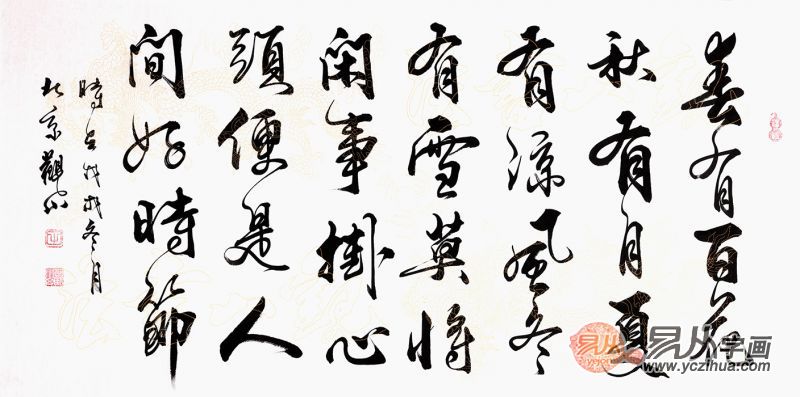 春有百花
秋有月夏
有涼風冬
有雪莫將
閑事掛心
頭便是人
間好時節
時在戊戌冬月
北京觀
易从
易从字画
www.yczihua.com